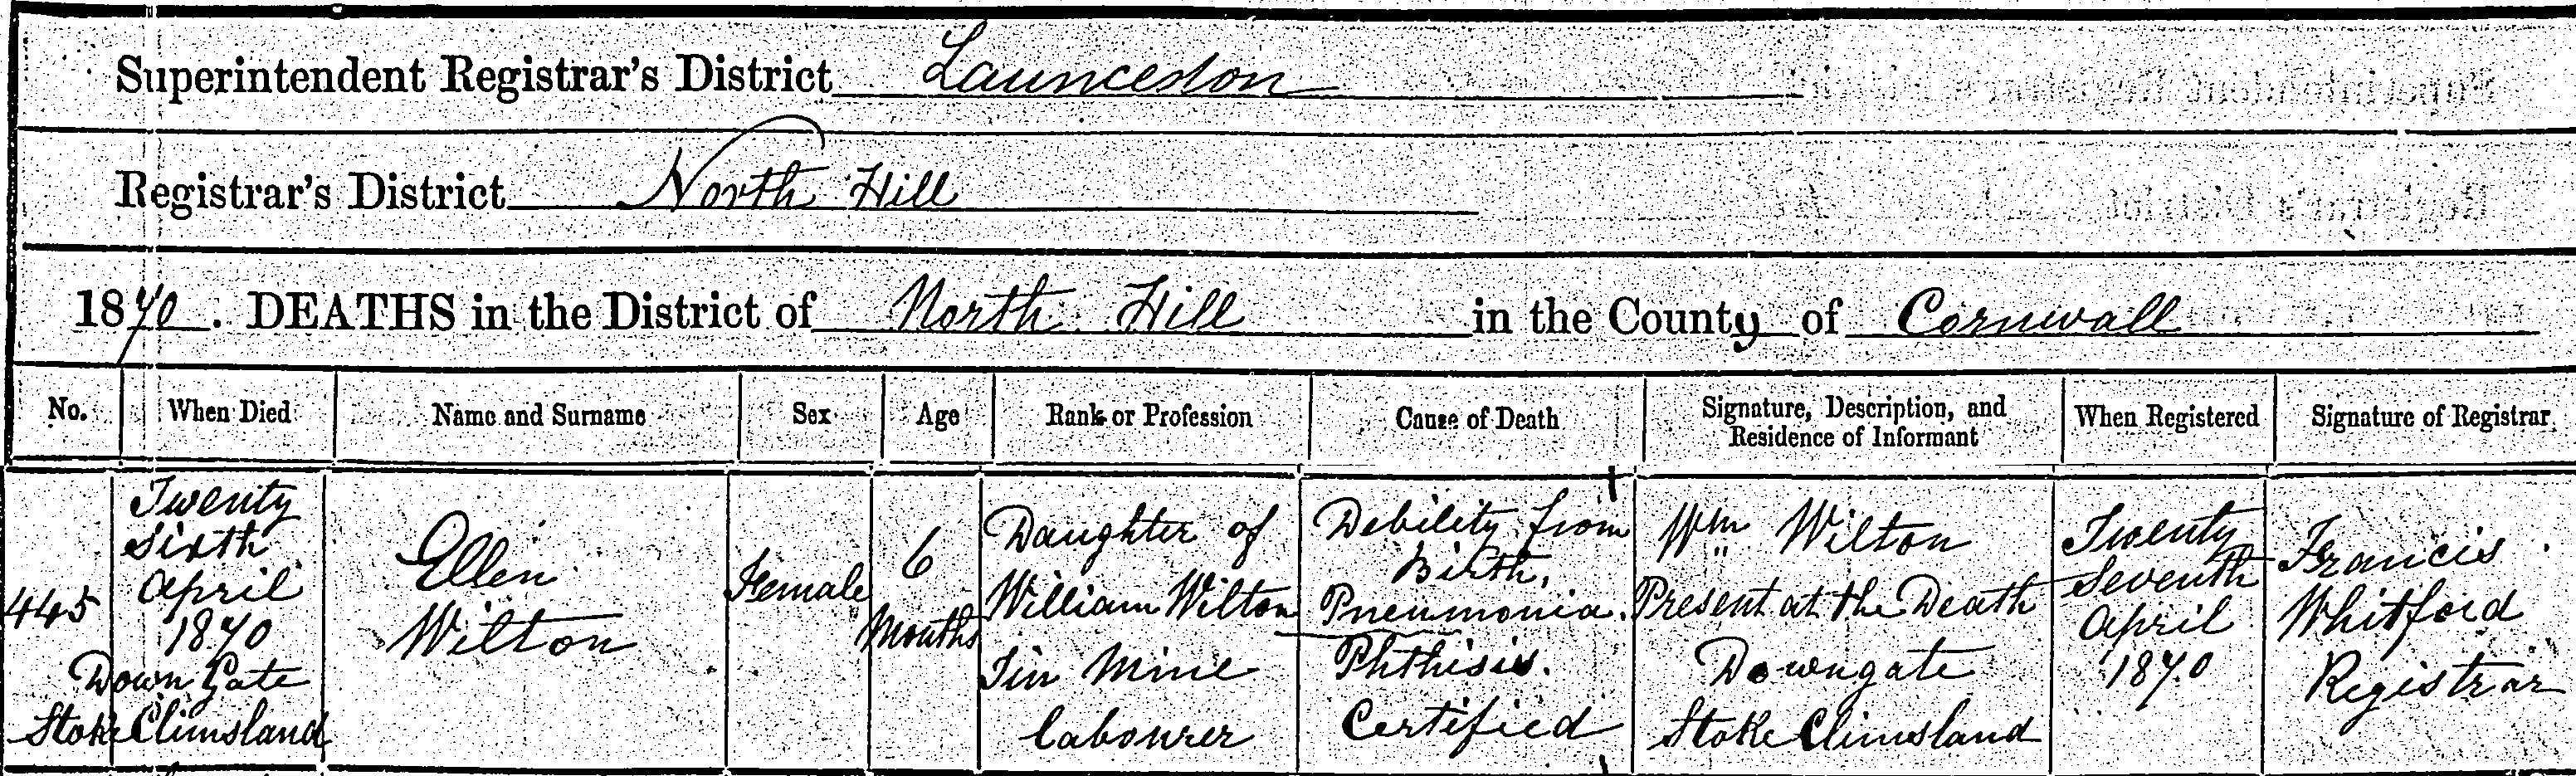 Superintendent Registrar's District Launceston
Registrar's District North Hill
1870. DEATHS in the District of North Hill in the County of Cornwall
No.
When Died
Name and Surname
Sex
Age
Rank or Profession
Cause of Death
Signature, Description, and
Residence of Informant
When Registered
Signature of Registrar
445
Twenty
Sixth
April
1870
Down Gate
Stoke Climsland
Ellen
Wilton
Female
6
Months
Daughter of
William Wilton
Tin Mine
labourer
Debility from
Birth,
Pneumonia.
Phthisis.
Certified
Wm Wilton
Present at the Death
Downgate
Stoke Climsland
Twenty
Seventh
April
1870
Francis
Whitford
Registrar